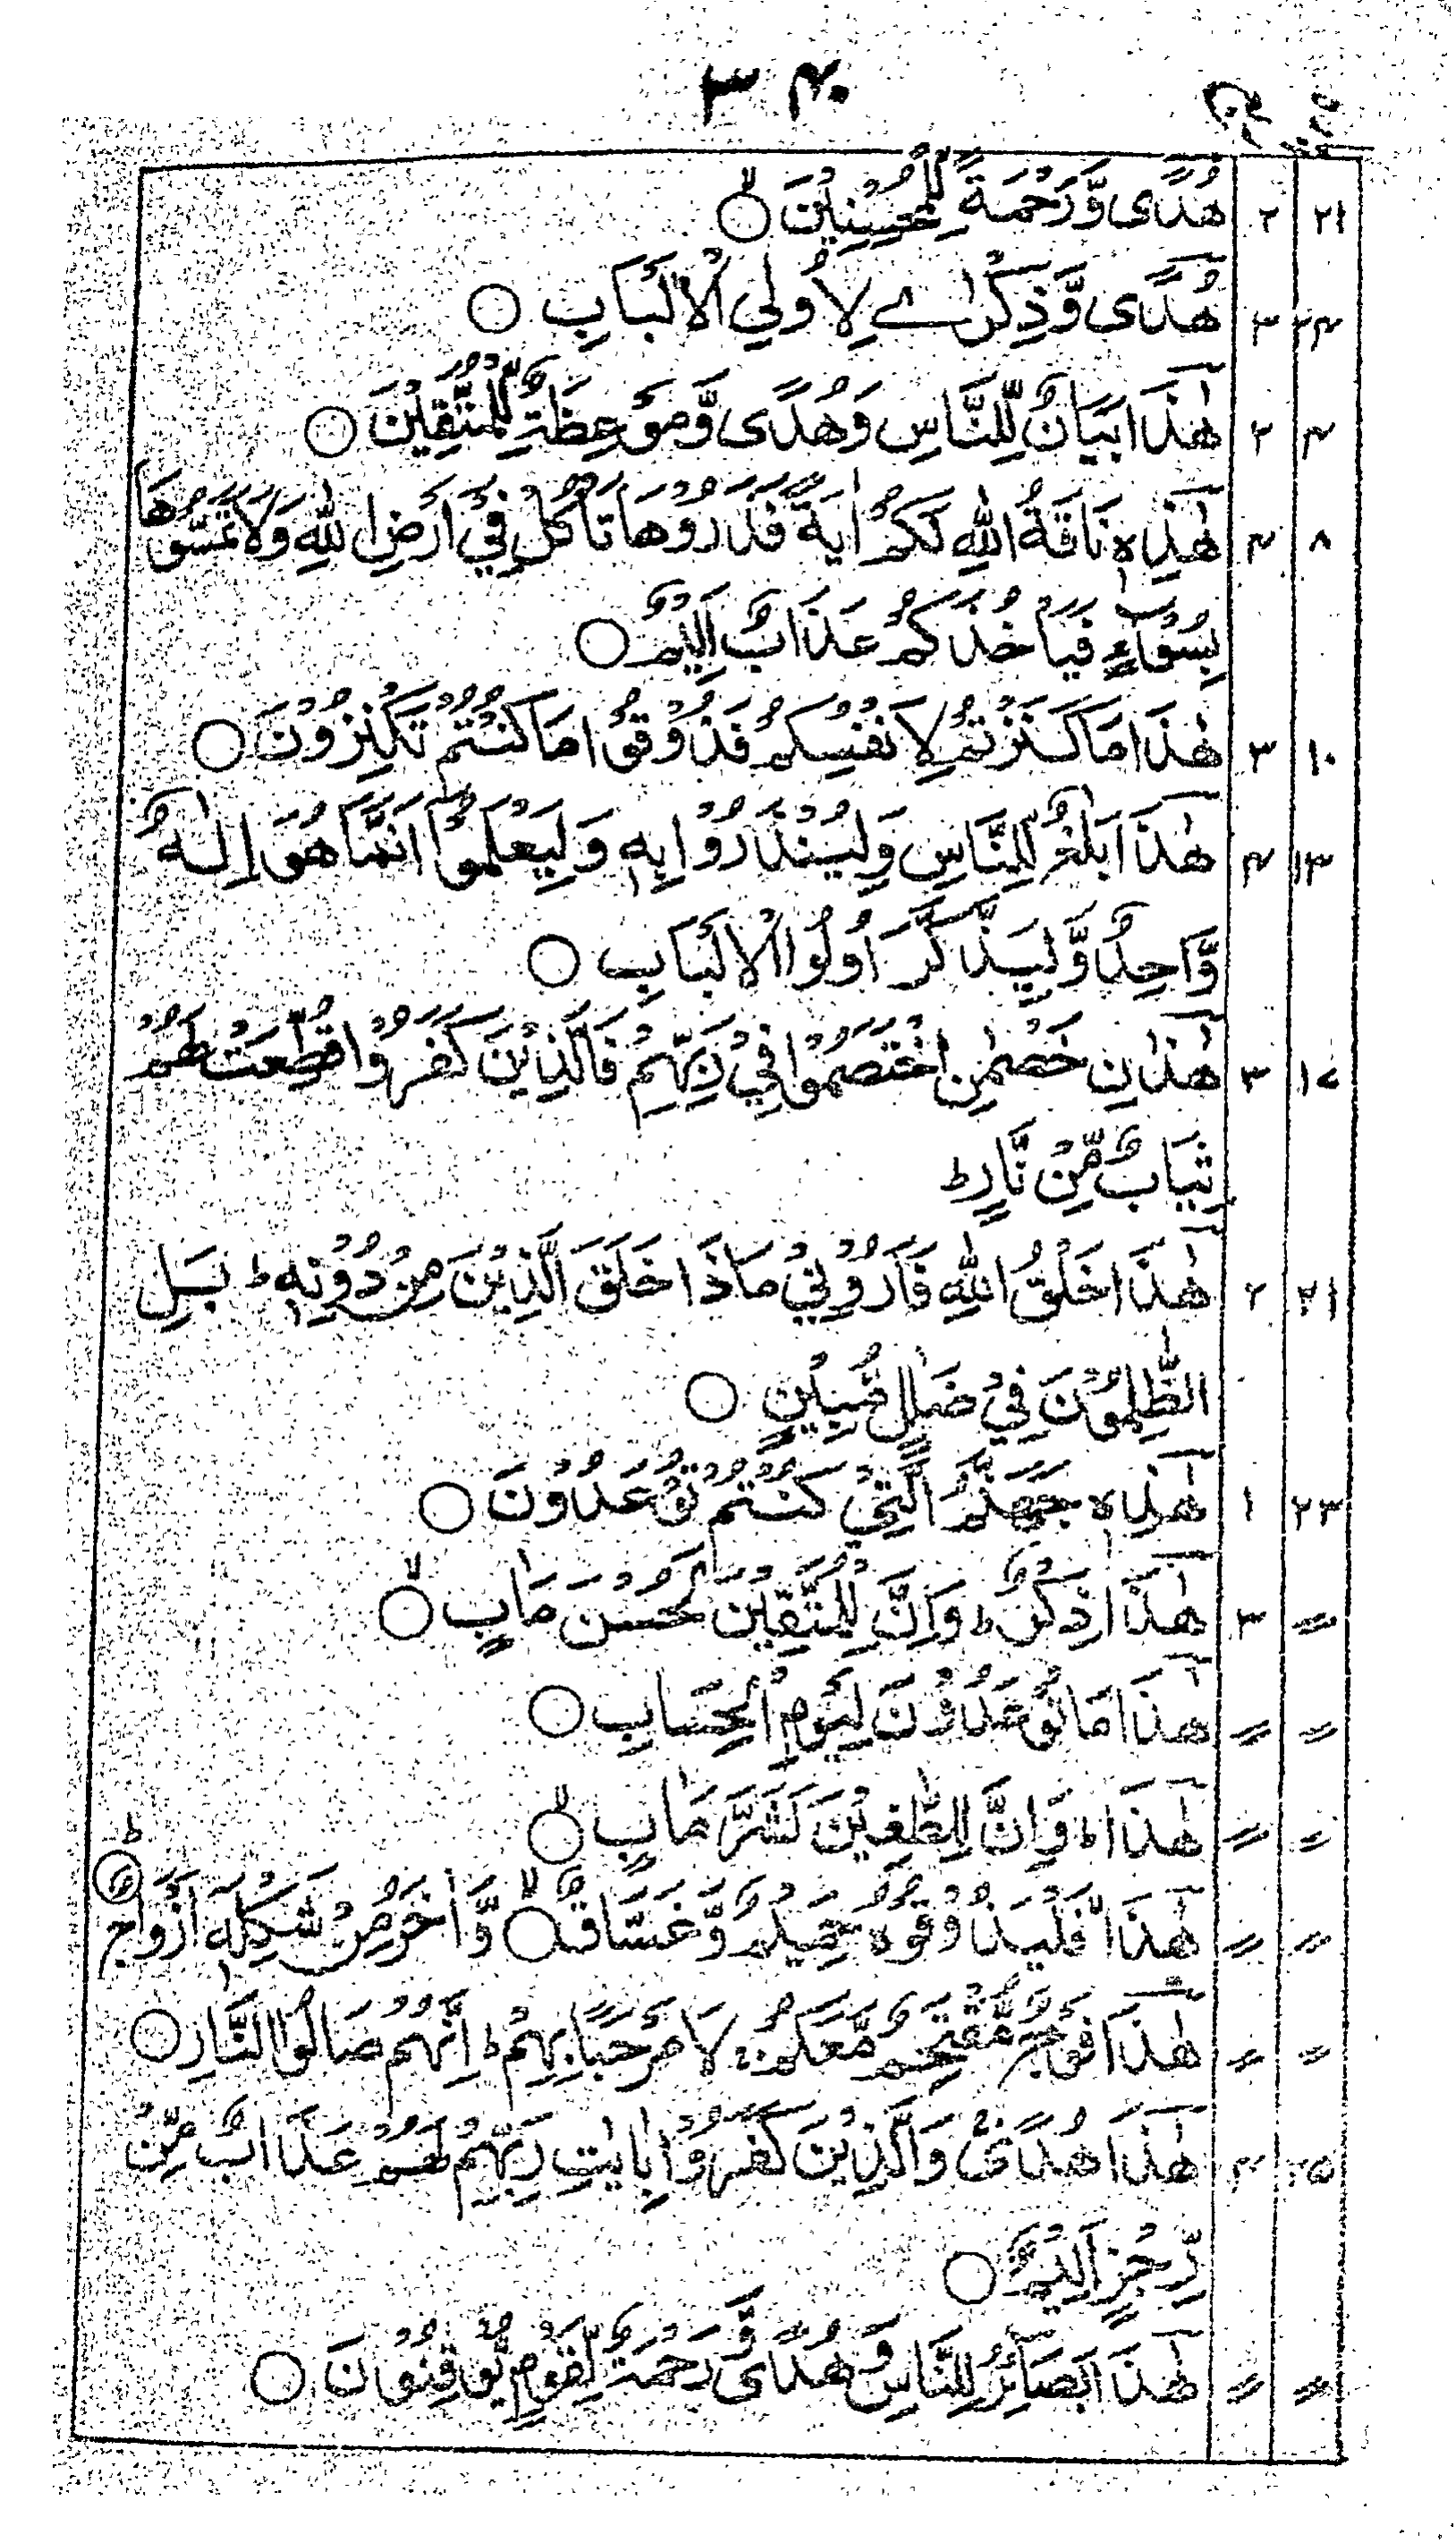 ۳۴۰
۲۱ ۲ هُدًى وَّرَحْمَةً لِّلْمُحْسِنِيْنَ ۙ○
۲۴ ۳ هُدًى وَّذِكْرٰے لِاُولِي الْاَلْبَابِ ○
۴ ۲ هٰذَا بَيَانٌ لِّلنَّاسِ وَهُدًى وَّمَوْعِظَةٌ لِّلْمُتَّقِيْنَ ○
۸ ۴ هٰذِهٖ نَاقَةُ اللّٰهِ لَكُمْ اٰيَةً فَذَرُوْهَا تَاْكُلْ فِيْٓ اَرْضِ اللّٰهِ وَلَا تَمَسُّوْهَا
بِسُوْٓءٍ فَيَاْخُذَكُمْ عَذَابٌ اَلِيْمٌ ○
۱۰ ۳ هٰذَا مَا كَنَزْتُمْ لِاَنْفُسِكُمْ فَذُوْقُوْا مَا كُنْتُمْ تَكْنِزُوْنَ ○
۱۳ ۴ هٰذَا بَلٰغٌ لِّلنَّاسِ وَلِيُنْذَرُوْا بِهٖ وَلِيَعْلَمُوْٓا اَنَّمَا هُوَ اِلٰهٌ
وَّاحِدٌ وَّلِيَذَّكَّرَ اُولُوا الْاَلْبَابِ ○
۱۷ ۳ هٰذٰنِ خَصْمٰنِ اخْتَصَمُوْا فِيْ رَبِّهِمْ فَالَّذِيْنَ كَفَرُوْا قُطِّعَتْ لَهُمْ
ثِيَابٌ مِّنْ نَّارٍ ط
۲۱ ۲ هٰذَا خَلْقُ اللّٰهِ فَاَرُوْنِيْ مَاذَا خَلَقَ الَّذِيْنَ مِنْ دُوْنِهٖ ط بَلِ
الظّٰلِمُوْنَ فِيْ ضَلٰلٍ مُّبِيْنٍ ○
۲۳ ۱ هٰذِهٖ جَهَنَّمُ الَّتِيْ كُنْتُمْ تُوْعَدُوْنَ ○
〃 ۳ هٰذَا ذِكْرٌ ط وَاِنَّ لِلْمُتَّقِيْنَ لَحُسْنَ مَاٰبٍ ۙ○
〃 〃 هٰذَا مَا تُوْعَدُوْنَ لِيَوْمِ الْحِسَابِ ○
〃 〃 هٰذَا ط وَاِنَّ لِلطّٰغِيْنَ لَشَرَّ مَاٰبٍ ۙ○
〃 〃 هٰذَا فَلْيَذُوْقُوْهُ حَمِيْمٌ وَّغَسَّاقٌ ۙ○ وَّاٰخَرُ مِنْ شَكْلِهٖٓ اَزْوَاجٌ ○ط
〃 〃 هٰذَا فَوْجٌ مُّقْتَحِمٌ مَّعَكُمْ ج لَا مَرْحَبًا بِهِمْ ط اِنَّهُمْ صَالُوا النَّارِ ○
۲۵ ۴ هٰذَا هُدًى ج وَالَّذِيْنَ كَفَرُوْا بِاٰيٰتِ رَبِّهِمْ لَهُمْ عَذَابٌ مِّنْ
رِّجْزٍ اَلِيْمٌ ○
〃 〃 هٰذَا بَصَآئِرُ لِلنَّاسِ وَهُدًى وَّرَحْمَةٌ لِّقَوْمٍ يُّوْقِنُوْنَ ○